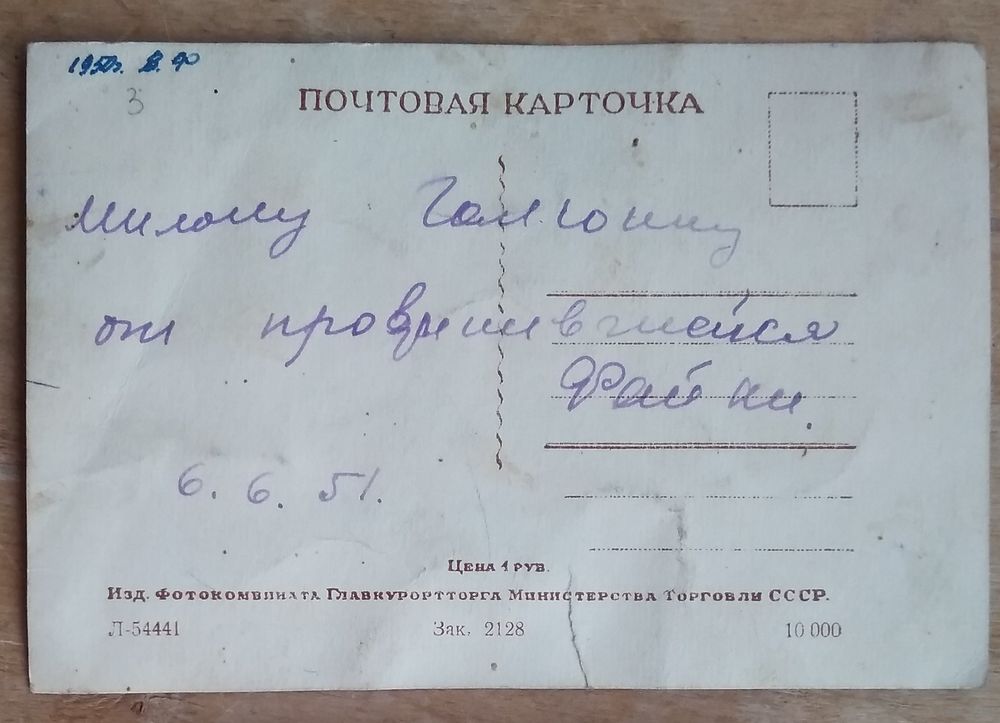 1950г.
3
ПОЧТОВАЯ КАРТОЧКА
Милому
от провинившейся
Файки
6. 6. 51.
ЦЕНА 1 РУВ.
ИЗД. ФОТОКОМБИНАТА ГЛАВКУРОРТТОРГА МИНИСТЕРСТВА ТОРГОВЛИ СССР.
Л-54441 Зак. 2128 10 000